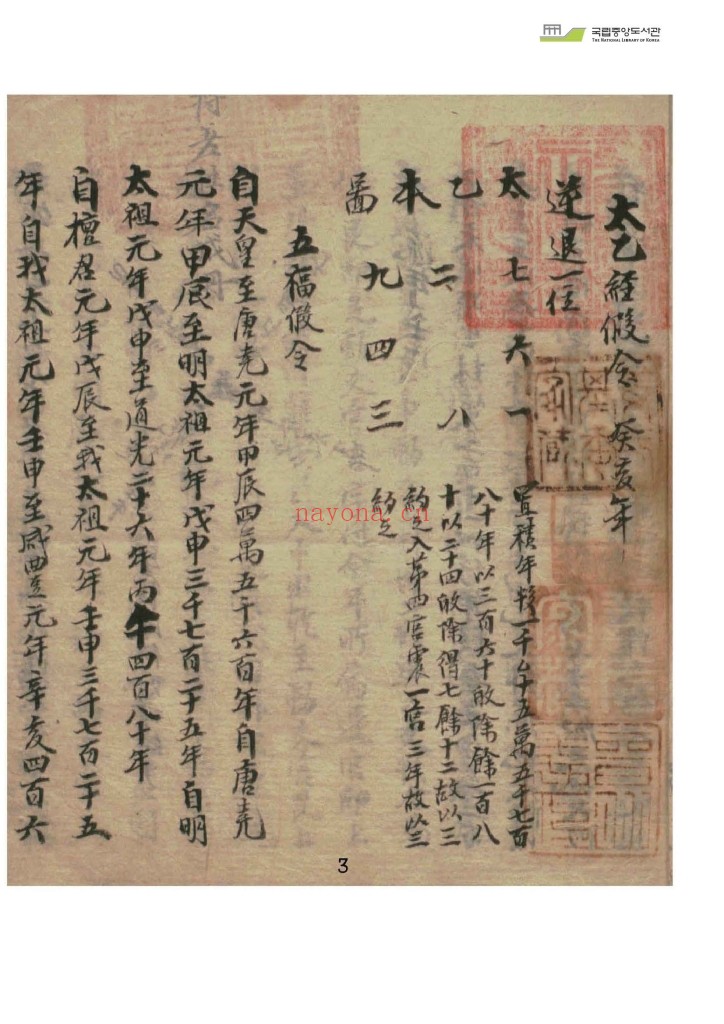 국립중앙도서관
THE NATIONAL LIBRARY OF KOREA
太乙經假令 癸亥年
逆退一位
太 七 六 一
乙 二 八
本
啚 九 四 三
置積年 一千 十五萬五千七百
八十年以三百六十 除餘一百八
十以二十四 除得七餘十二故以三
約之入第四宮震一宮三年故以三
約之
五福假令
自天皇至唐堯元年甲辰四萬五千六百年自唐堯
元年甲辰至明太祖元年戊申三千七百二十五年自明
太祖元年戊申至道光二十六年丙午四百八十年
自檀君元年戊辰至我太祖元年壬申三千七百二十五
年自我太祖元年壬申至咸豊元年辛亥四百六
nayona.cn
3